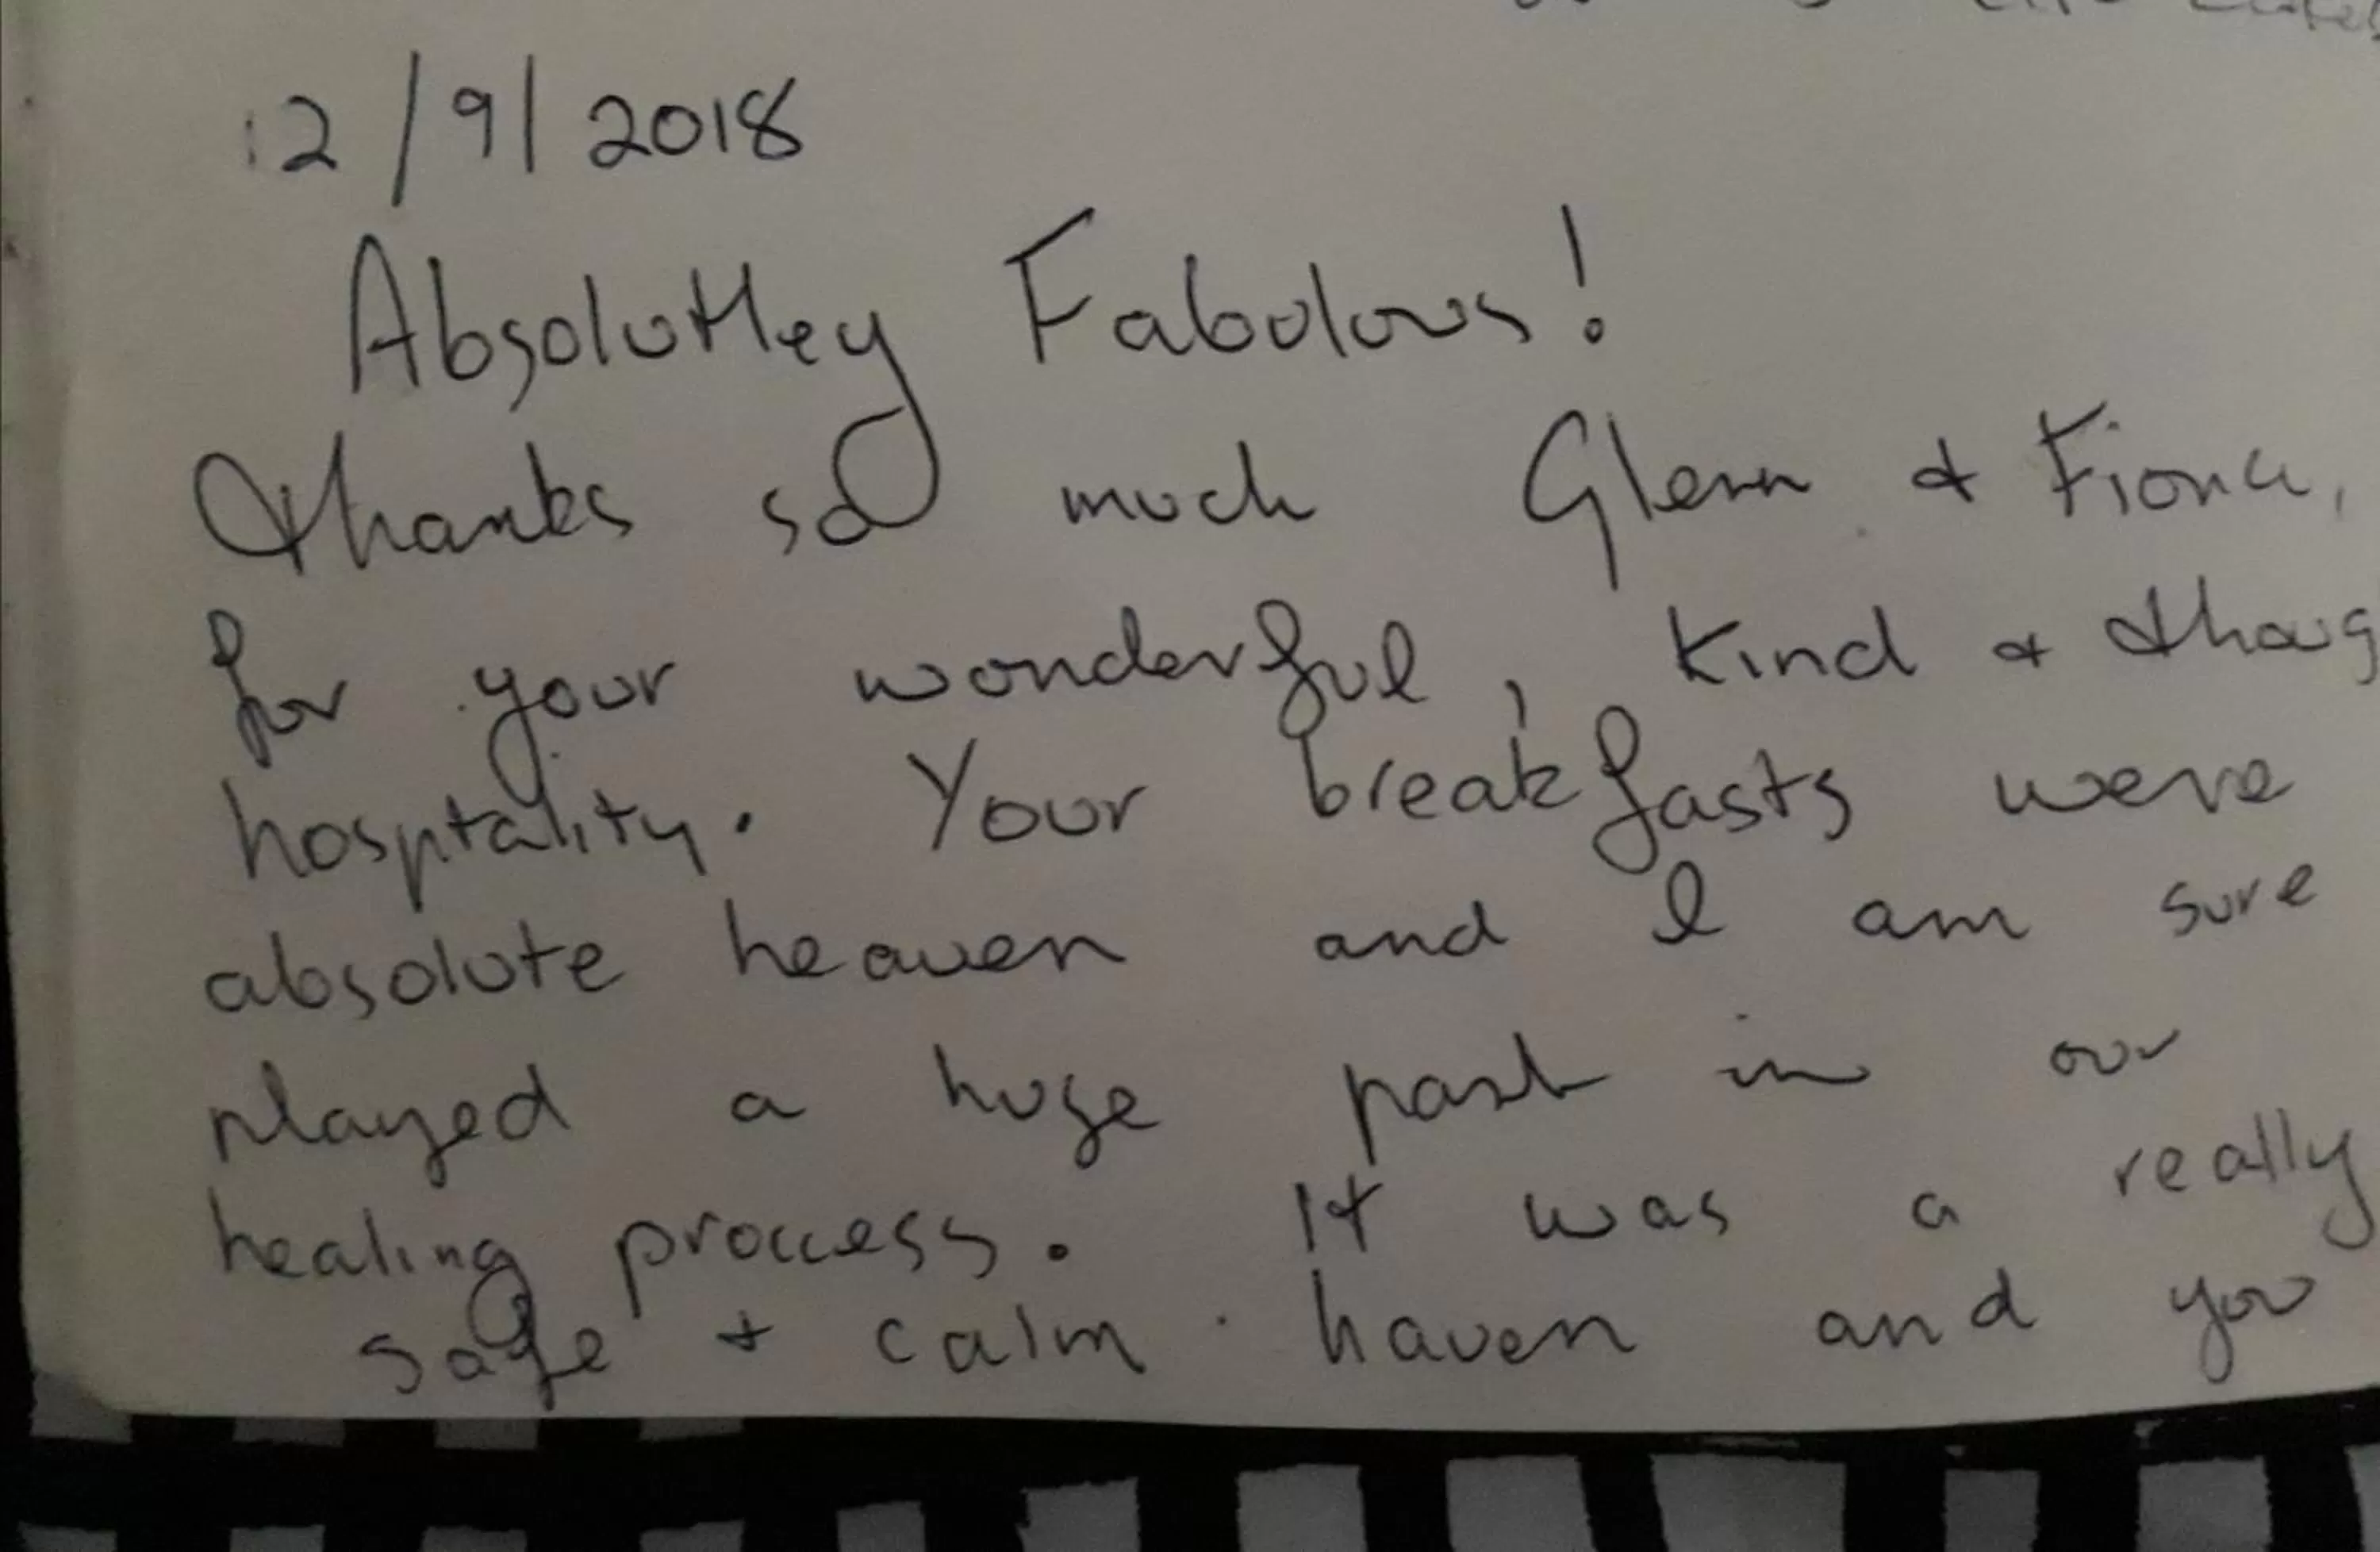 12/9/2018
Absolutley Fabulous!
thanks so much Glenn & Fiona,
for your wonderful, kind & thoug
hosptality. Your breakfasts were
absolute heaven and I am sure
played a huge part in our
healing proccess. It was a really
safe + calm haven and you